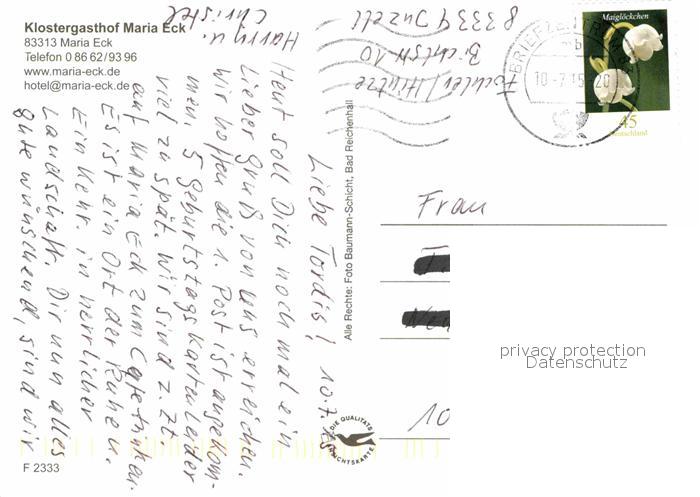 Klostergasthof Maria Eck
83313 Maria Eck
Telefon 0 86 62/93 96
www.maria-eck.de
hotel@maria-eck.de
Liebe Tordis! 10.7.
Heut soll Dich noch mal ein
lieber Gruß von uns erreichen.
Wir hoffen die 1. Post ist angekom-
men. 5 Geburtstagskarten leider
viel zu spät. Wir sind z. Zt.
auf Maria Eck zum Cafetrinken.
Es ist ein Ort der Ruhe u.
Einkehr. in herrlicher
Landschaft. Dir nun alles
gute wünschend, sind wir
Harry u.
Christel
83334 Inzell
10
F 2333
Alle Rechte: Foto Baumann-Schicht, Bad Reichenhall
DIE QUALITÄTS
ANSICHTSKARTE
BRIEFZENTRUM
mb
10.-7.15-20
Maiglöckchen
45
Deutschland
Frau
10
privacy protection
Datenschutz